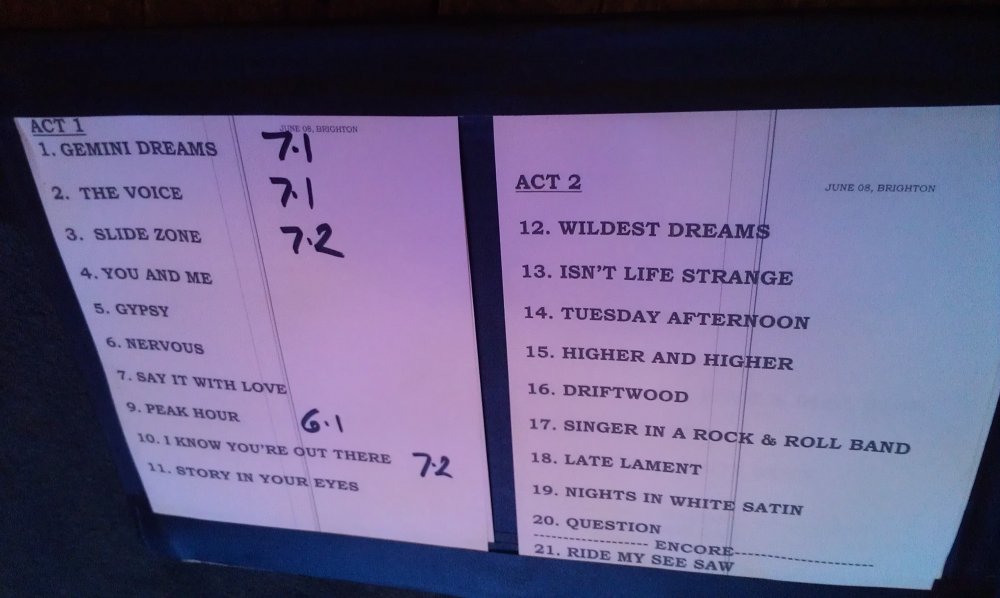 ACT 1
JUNE 08, BRIGHTON
1. GEMINI DREAMS 7.1
2. THE VOICE 7.1
3. SLIDE ZONE 7.2
4. YOU AND ME
5. GYPSY
6. NERVOUS
7. SAY IT WITH LOVE
9. PEAK HOUR 6.1
10. I KNOW YOU'RE OUT THERE 7.2
11. STORY IN YOUR EYES
ACT 2
JUNE 08, BRIGHTON
12. WILDEST DREAMS
13. ISN'T LIFE STRANGE
14. TUESDAY AFTERNOON
15. HIGHER AND HIGHER
16. DRIFTWOOD
17. SINGER IN A ROCK & ROLL BAND
18. LATE LAMENT
19. NIGHTS IN WHITE SATIN
20. QUESTION
------------------ ENCORE----------------------
21. RIDE MY SEE SAW